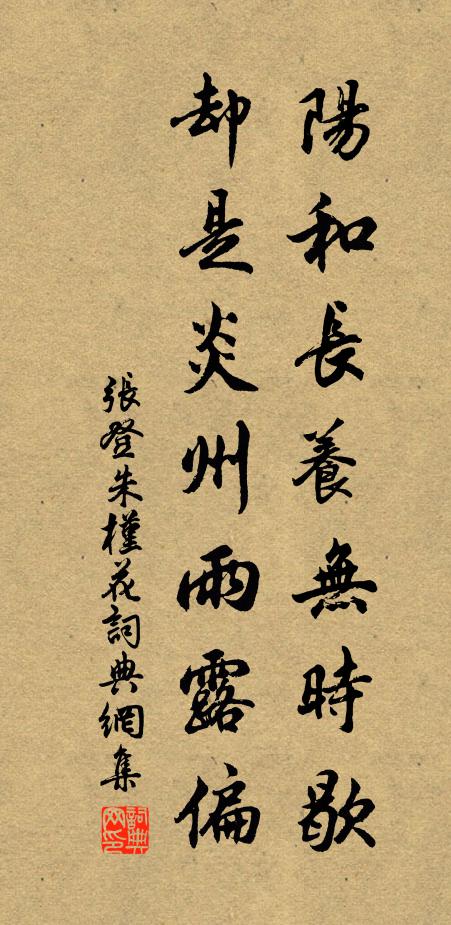 陽和長養無時歇
却是炎州雨露偏
張登朱槿花詞典網集
詞典網印